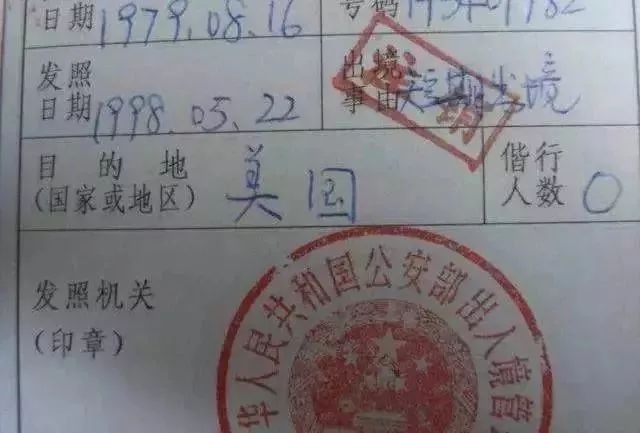 日期 1979.08.16 号码
发照日期 1998.05.22 出境事由 短期出境
目的地(国家或地区) 美国 偕行人数 0
发照机关
(印章)
华人民共和国公安部出入境管